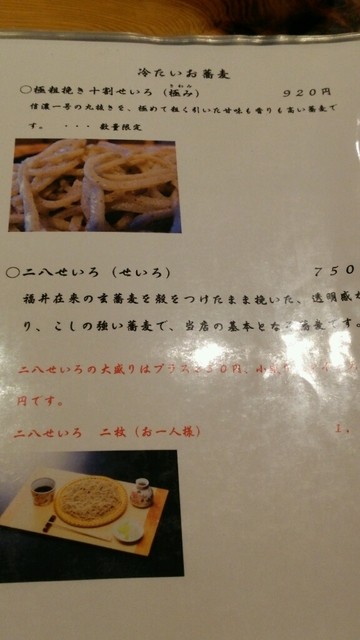 冷たいお蕎麦
〇極粗挽き十割せいろ（極み） 920円
きわみ
信濃一号の丸抜きを、極めて粗く引いた甘味も香りも高い蕎麦で
す。 ・・・ 数量限定
〇二八せいろ（せいろ） 750
福井在来の玄蕎麦を殻をつけたまま挽いた、透明感が
り、こしの強い蕎麦で、当店の基本となる蕎麦です。
二八せいろの大盛りはプラス 50円、小
円です。
二八せいろ 二枚（お一人様） 1,